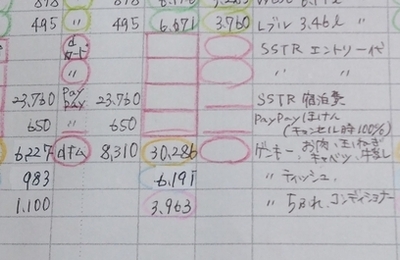 495 〃 495 6,671 3,760 Lブル 3.46ℓ 〃
d カード SSTR エントリー代
〃 〃 〃
23,760 PayPay 23,760 SSTR 宿泊費
650 〃 650 PayPayほけん
(キャンセル時100%)
6,227 dキム 8,310 30,286 ゲンキー、お肉、玉ねぎ
キャベツ、
983 6,191 〃 ティッシュ、
1,100 3,963 〃 コンディショナー